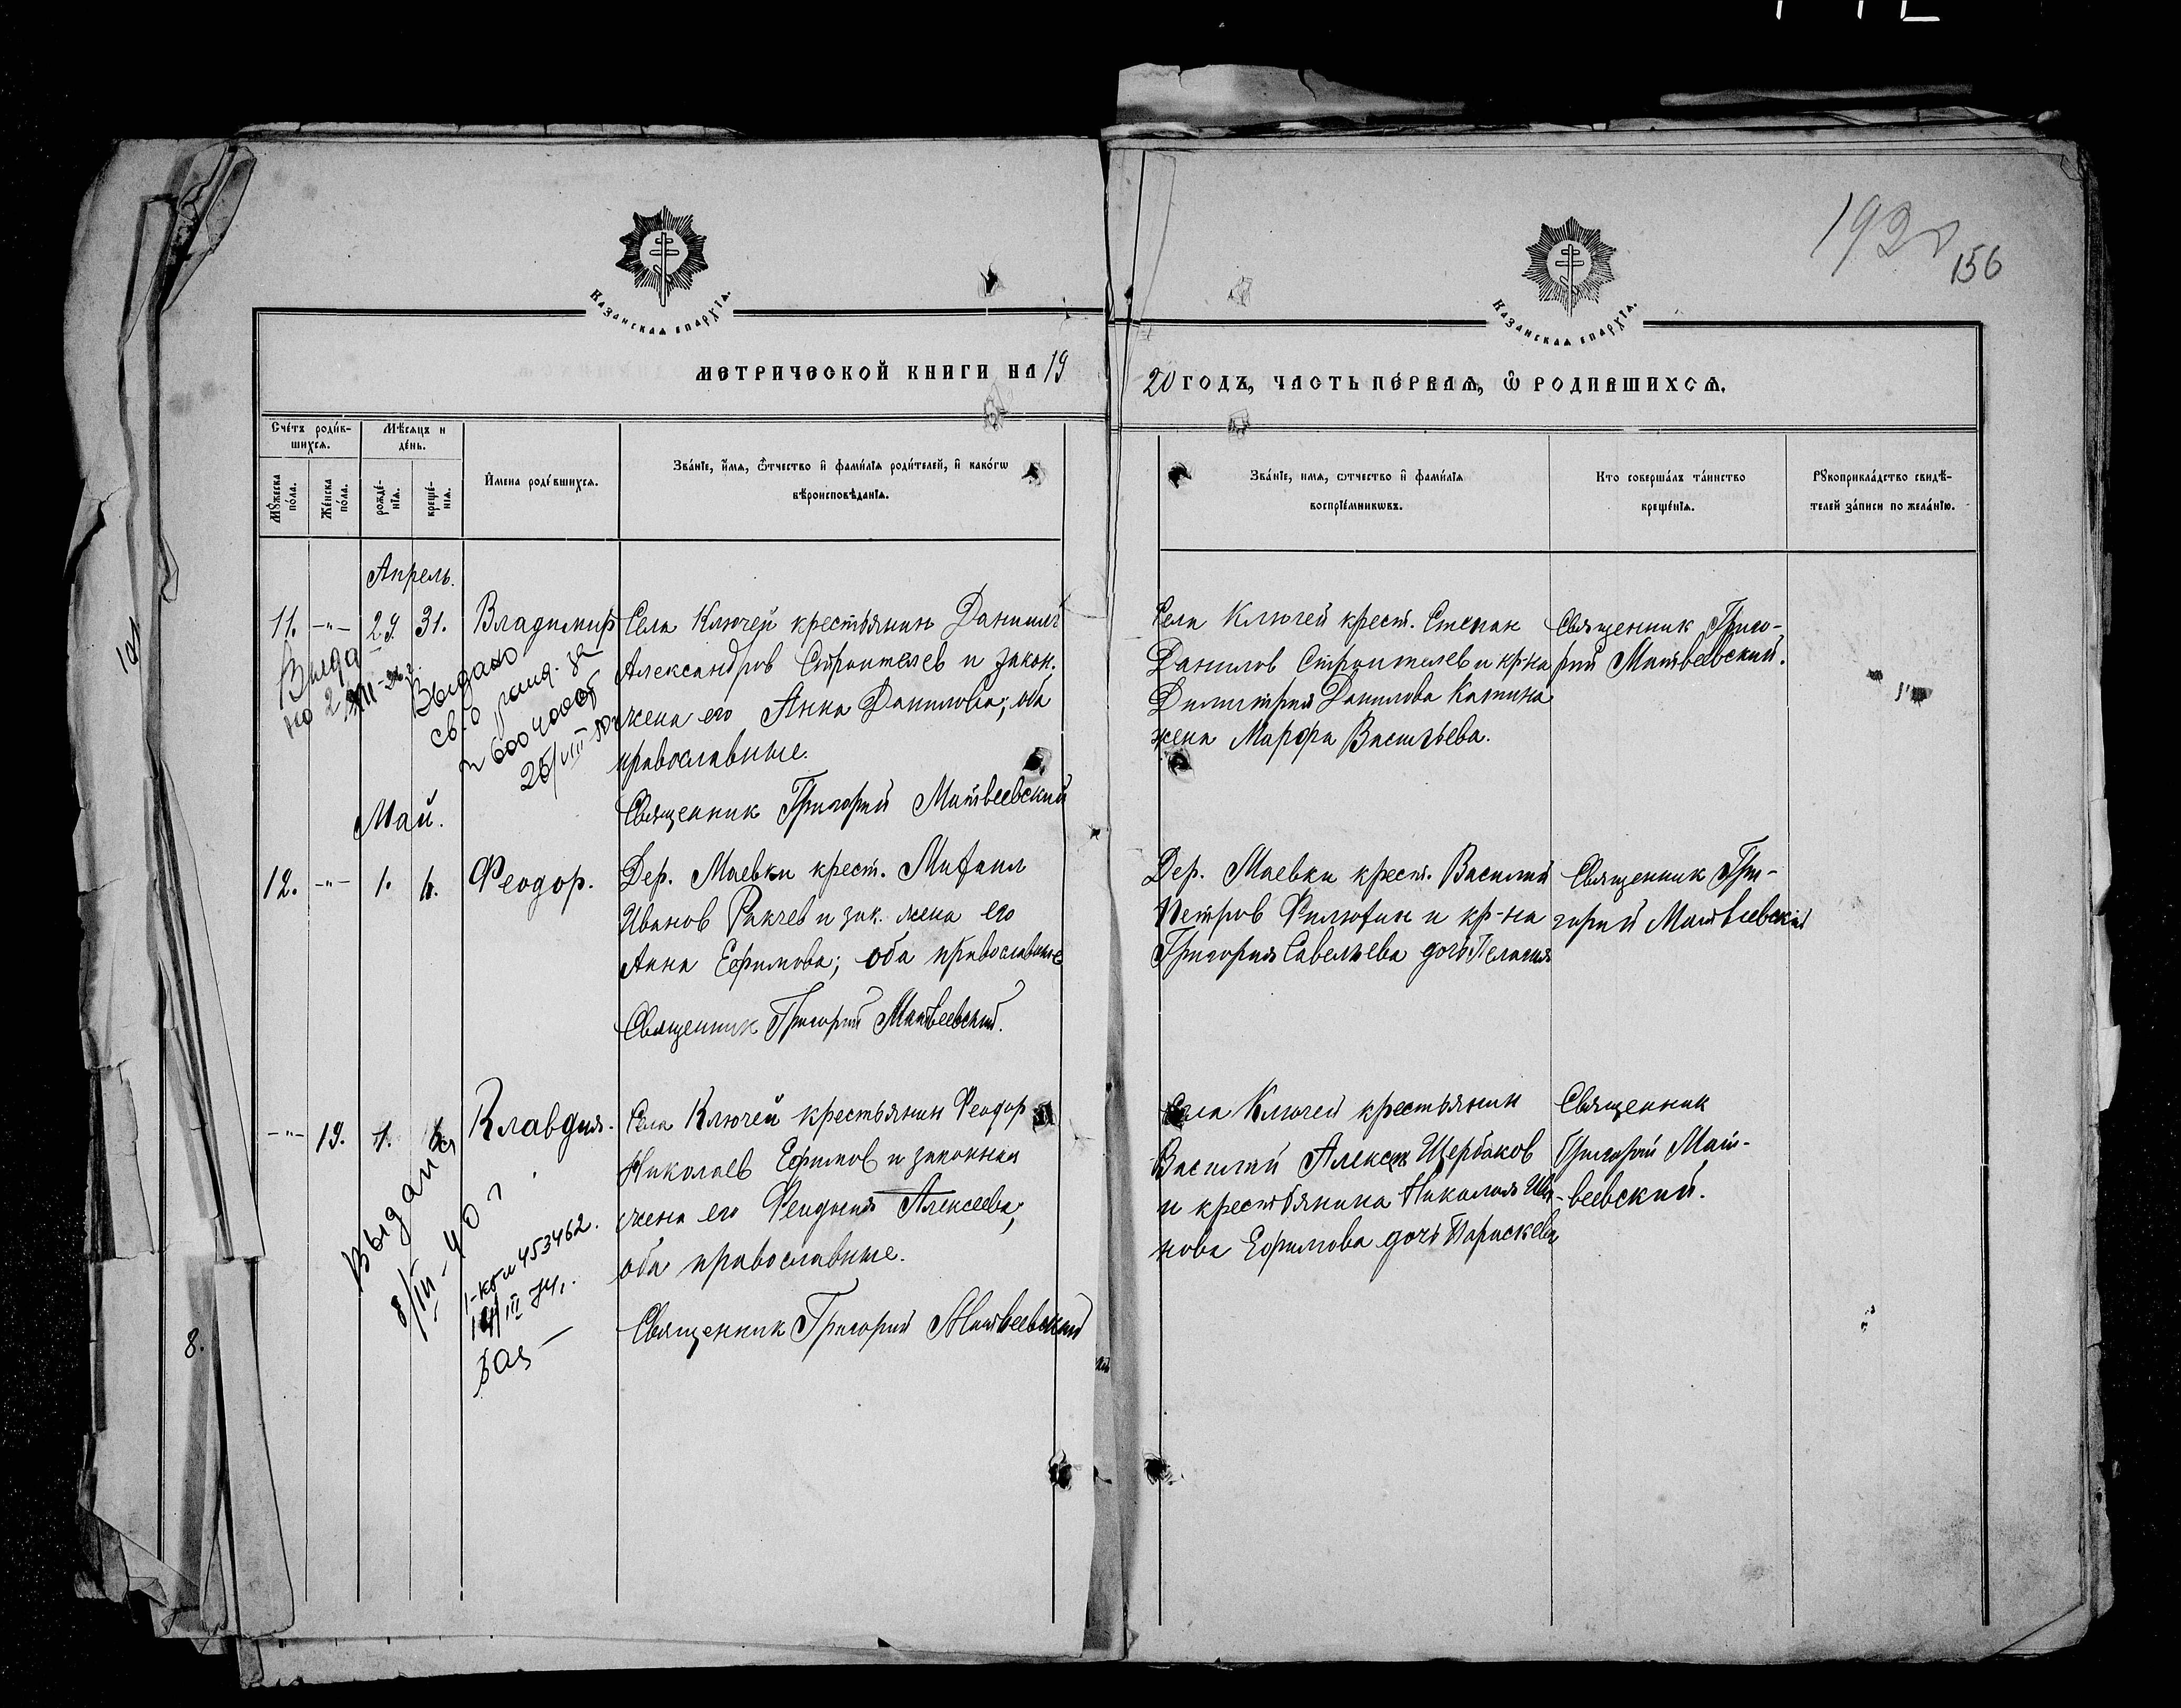 1920
156
Казанская епархїа.
Казанская епархїа.
МЕТРИЧЕСКОЙ КНИГИ НА 19
20 ГОДЪ, ЧАСТЬ ПЕ́РВАѦ, Ѿ РОДИВШИХСѦ.
Сче́тъ роди́в-
шихсѧ.
Мѣ́сѧцъ и
де́нь.
Мꙋ́жеска
по́ла.
Же́нска
по́ла.
рожде́-
нїѧ.
креще́-
нїѧ.
И҆мена роди́вшихсѧ.
Зва́нїе, и҆́мѧ, ѻ҆́тчество и҆ фами́лїѧ роди́телей, и҆ како́гѡ
вѣроисповѣ́данїѧ.
Зва́нїе, имѧ, ѡтчество и҆ фами́лїѧ
воспрїе́мникѡвъ.
Кто соверша́лъ та́инство
креще́нїѧ.
Рꙋкоприкла́дство свидѣ́-
телей за́писи по жела́нїю.
Апрель.
11. -"- 29. 31. Владимир
Села Ключей крестьянин Даниил
Александров Строителев и закон.
жена его Анна Данилова; оба
православные.
Священник Григорий Матвеевский
Села Ключей крест. Степан
Данилов Строителев и кр-на
Димитрия Данилова Калинина
жена Марфа Васильева.
Священник Григо-
рий Матвеевский.
Выда
но 2
Выдано
св.о
25/VIII
Май.
12. -"- 1. 6. Феодор.
Дер. Маевки крест. Михаил
Иванов Ракчев и зак. жена его
Анна Ефимова; оба православные
Священник Григорий Матвеевский.
Дер. Маевки крест. Василий
Петров Филютин и кр-на
Григория Савельева дочь Пелагия
Священник Гри-
горий Матвеевский
-"- 19. 1. 6. Клавдия.
Села Ключей крестьянин Феодор
Николаев Ефимов и законная
жена его Феодосия Алексеева;
оба православные.
Священник Григорий Матвеевский
Села Ключей крестьянин
Василий Алексеев Щербаков
и крестьянина Николая Ива-
нова Ефимова дочь Параскева
Священник
Григорий Мат-
веевский.
Выдан
8/III-40 г
453462.
8.